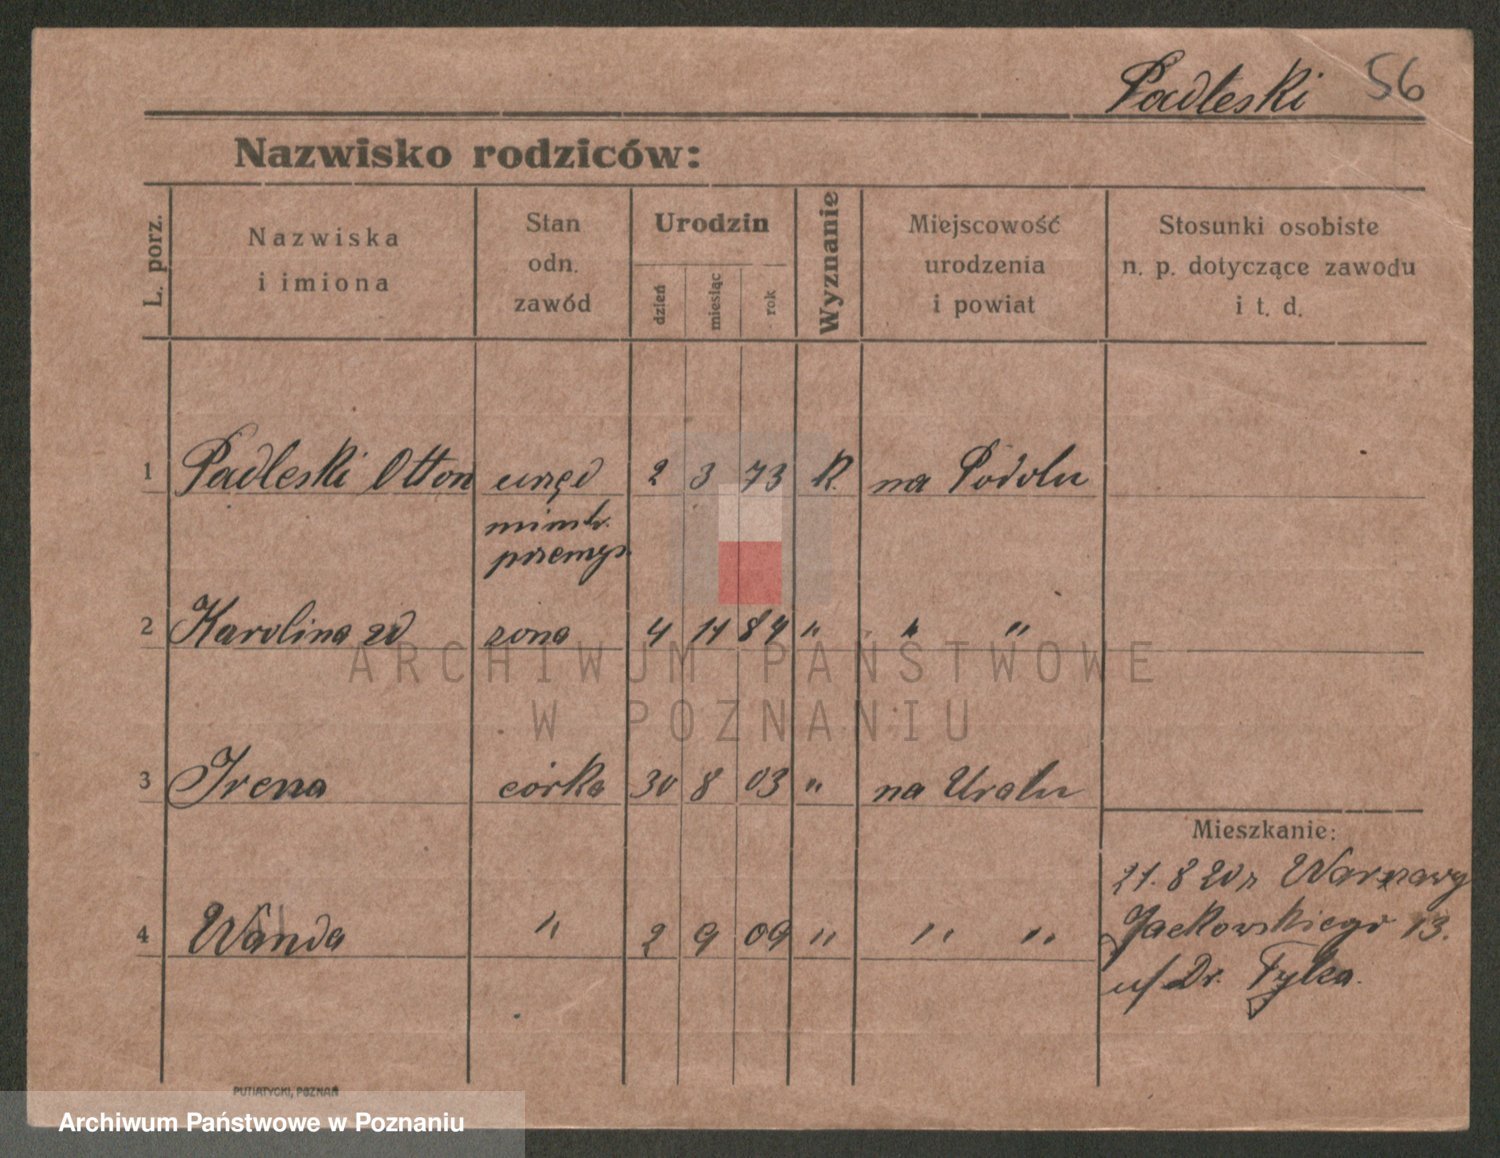 Padleski 56
Nazwisko rodziców:
L. porz.
Nazwiska
i imiona
Stan
odn.
zawód
Urodzin
dzień
miesiąc
rok
Wyznanie
Miejscowość
urodzenia
i powiat
Stosunki osobiste
n. p. dotyczące zawodu
i t. d.
1 Padleski Otton urzęd 2 3 73 R. na Podolu
przemys.
2 Karolina zd zona 4 11 84 " " "
3 Irena córka 30 8 03 " na Uralu
Mieszkanie:
21. 8 20 z Warszawy
4 Wanda " 2 9 09 " " "
Jackowskiego 13.
u/ Dr. Tylca.
PUTIATYCKI, POZNAŃ
ARCHIWUM PAŃSTWOWE
W POZNANIU
Archiwum Państwowe w Poznaniu